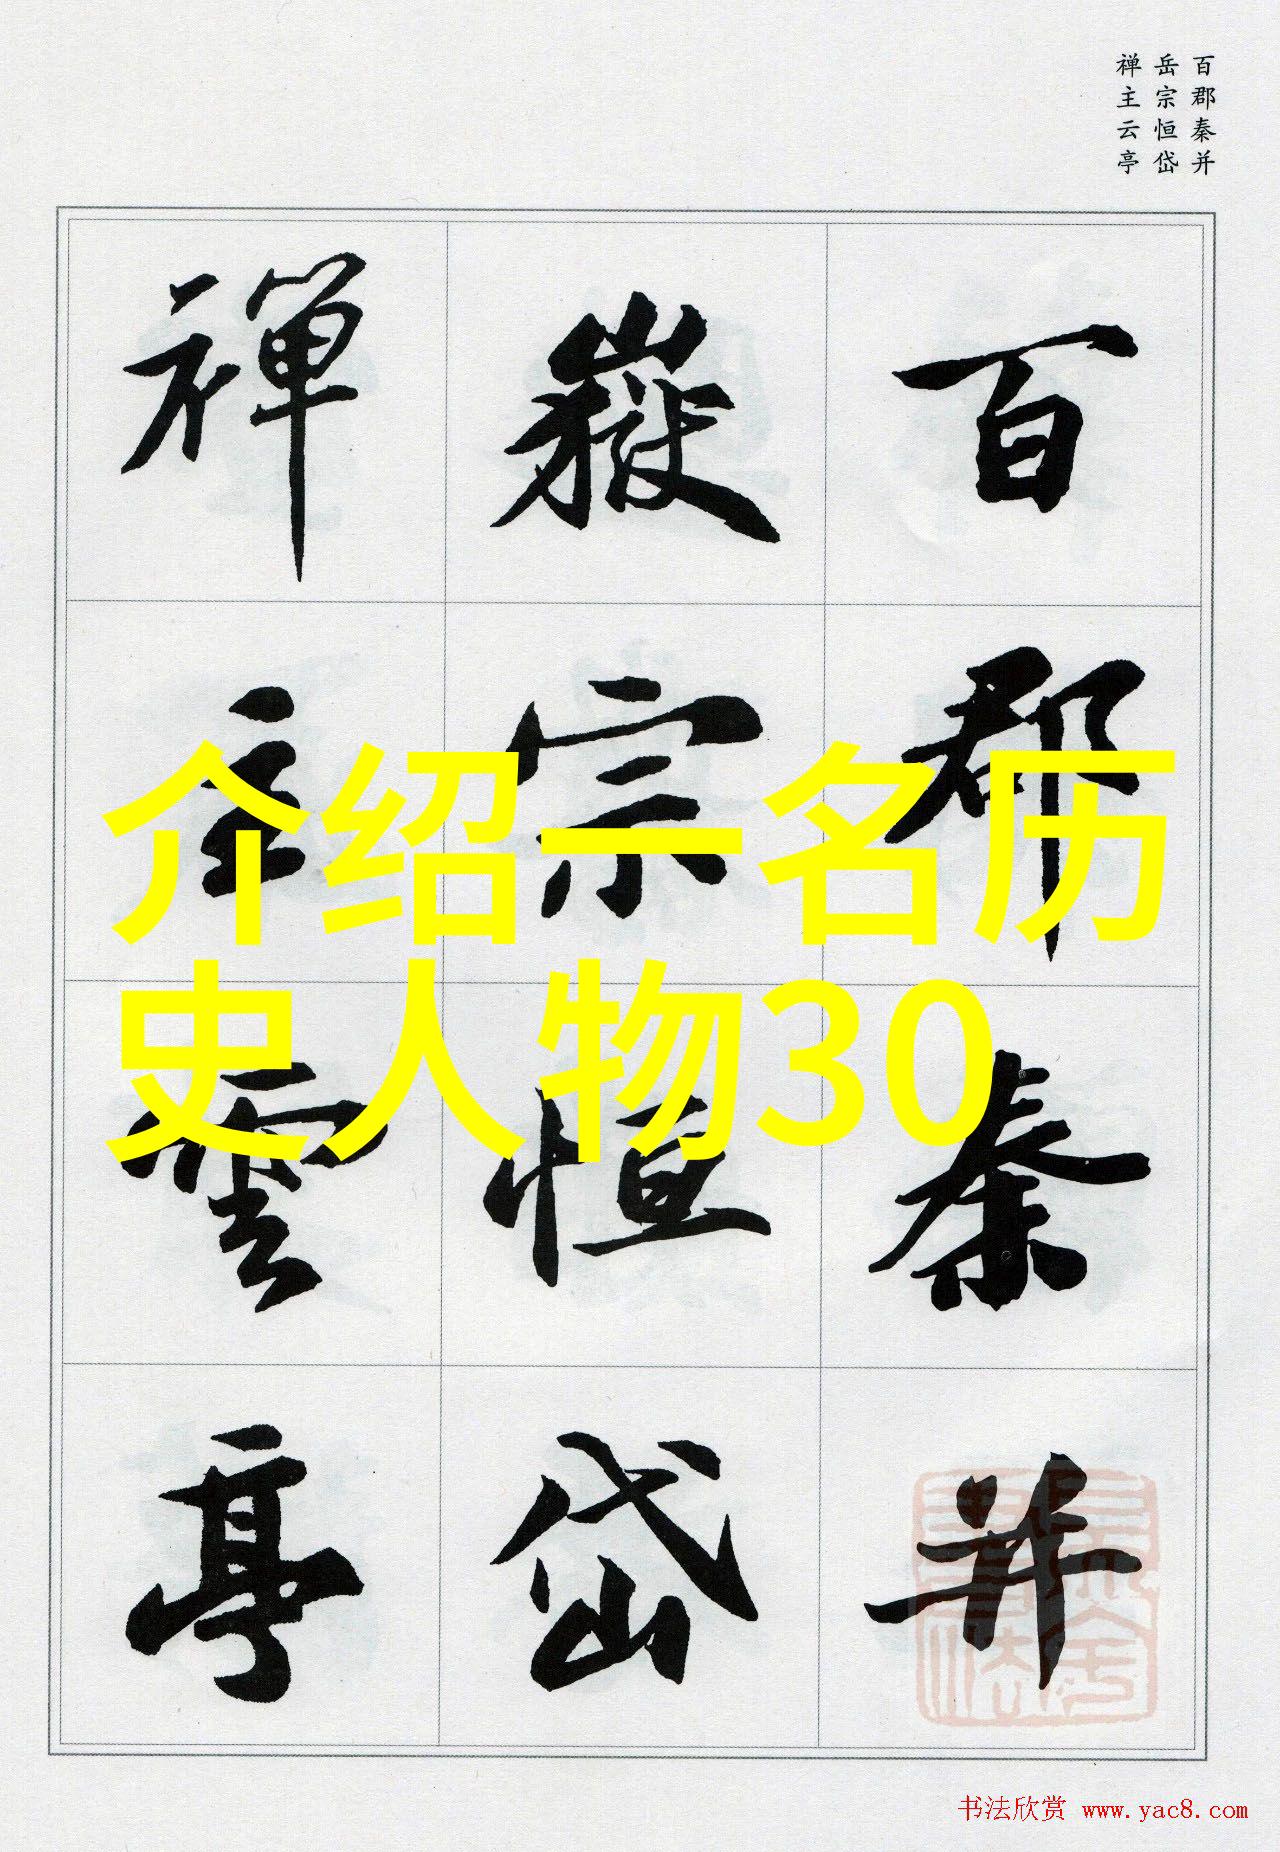 百郡秦并
岳宗恒岱
禅主云亭
百郡秦并
嶽宗恒岱
禪主雲亭
介绍一名历
史人物30
书法欣赏 www.yac8.com